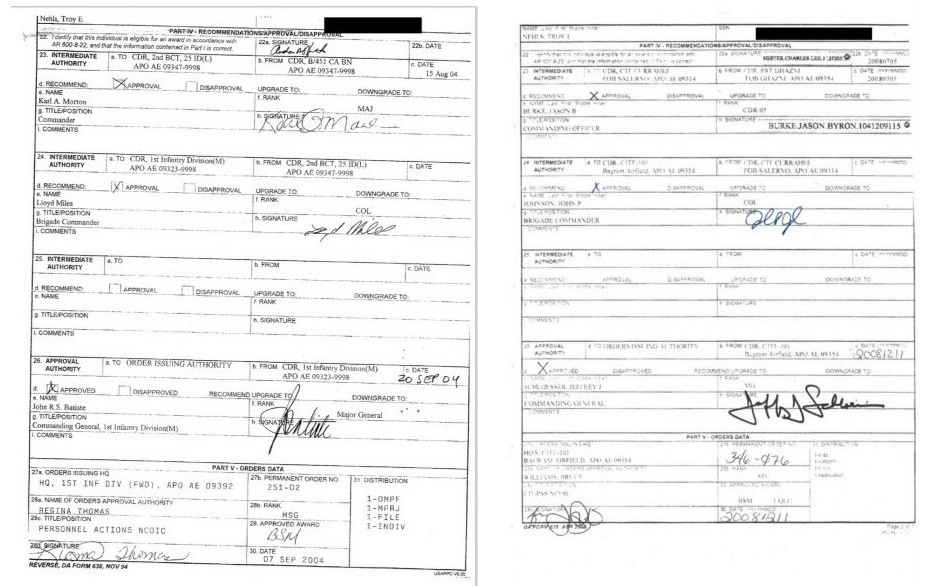 Nehls, Troy E.
PART IV - RECOMMENDATIONS/APPROVAL/DISAPPROVAL
22. I certify that this individual is eligible for an award in accordance with AR 600-8-22, and that the information contained in Part I is correct.
22a. SIGNATURE
22b. DATE
23. INTERMEDIATE AUTHORITY
a. TO CDR, 2nd BCT, 25 ID(L)
APO AE 09347-9998
b. FROM CDR, B/451 CA BN
APO AE 09347-9998
c. DATE
15 Aug 04
d. RECOMMEND: X APPROVAL DISAPPROVAL UPGRADE TO: DOWNGRADE TO:
e. NAME
Karl A. Morton
f. RANK
MAJ
g. TITLE/POSITION
Commander
h. SIGNATURE
i. COMMENTS
24. INTERMEDIATE AUTHORITY
a. TO CDR, 1st Infantry Division(M)
APO AE 09323-9998
b. FROM CDR, 2nd BCT, 25 ID(L)
APO AE 09347-9998
c. DATE
d. RECOMMEND: X APPROVAL DISAPPROVAL UPGRADE TO: DOWNGRADE TO:
e. NAME
Lloyd Miles
f. RANK
COL
g. TITLE/POSITION
Brigade Commander
h. SIGNATURE
Lloyd Miles
i. COMMENTS
25. INTERMEDIATE AUTHORITY
a. TO
b. FROM
c. DATE
d. RECOMMEND: APPROVAL DISAPPROVAL UPGRADE TO: DOWNGRADE TO:
e. NAME
f. RANK
g. TITLE/POSITION
h. SIGNATURE
i. COMMENTS
26. APPROVAL AUTHORITY
a. TO ORDER ISSUING AUTHORITY
b. FROM CDR, 1st Infantry Division(M)
APO AE 09323-9998
c. DATE
20 SEP 04
d. X APPROVED DISAPPROVED RECOMMEND UPGRADE TO: DOWNGRADE TO:
e. NAME
John R.S. Batiste
f. RANK
Major General
g. TITLE/POSITION
Commanding General, 1st Infantry Division(M)
h. SIGNATURE
i. COMMENTS
PART V - ORDERS DATA
27a. ORDERS ISSUING HQ
HQ, 1ST INF DIV (FWD), APO AE 09392
27b. PERMANENT ORDER NO.
251-02
31. DISTRIBUTION
1-OMPF
1-MPRJ
1-FILE
1-INDIV
28a. NAME OF ORDERS APPROVAL AUTHORITY
REGINA THOMAS
28b. RANK
MSG
28c. TITLE/POSITION
PERSONNEL ACTIONS NCOIC
29. APPROVED AWARD
BSM
28d. SIGNATURE
30. DATE
07 SEP 2004
REVERSE, DA FORM 638, NOV 94
USAPPC V6.00
NEHLS, TROY E
SSN
PART IV - RECOMMENDATIONS/APPROVAL/DISAPPROVAL
20080705
INTERMEDIATE AUTHORITY
a. TO CDR, CTF CURRAHEE
FOB SALERNO, APO AE 09314
b. FROM CDR, PRT GHAZNI
FOB GHAZNI, APO AE
20080705
d. RECOMMEND X APPROVAL DISAPPROVAL UPGRADE TO: DOWNGRADE TO:
BURKE, JASON B
CDR
COMMANDING OFFICER
h. SIGNATURE
BURKE.JASON.BYRON.1041209115
24 INTERMEDIATE AUTHORITY
a. TO CDR, CJTF-101
Bagram Airfield, APO AE 09354
b. FROM CDR, CTF CURRAHEE
FOB SALERNO, APO AE 09314
X APPROVAL DISAPPROVAL UPGRADE TO: DOWNGRADE TO:
JOHNSON, JOHN P
COL
BRIGADE COMMANDER
h. SIGNATURE
COMMENTS
25 INTERMEDIATE AUTHORITY
a. TO
b. FROM
RECOMMEND APPROVAL DISAPPROVAL UPGRADE TO: DOWNGRADE TO:
h. SIGNATURE
COMMENTS
APPROVAL AUTHORITY
a. TO ORDERS ISSUING AUTHORITY
b. FROM CDR, CJTF-101
Bagram Airfield, APO AE 09354
20081211
X APPROVED DISAPPROVED RECOMMEND UPGRADE TO: DOWNGRADE TO:
SCHLOESSER, JEFFREY J
MG
COMMANDING GENERAL
COMMENTS
PART V - ORDERS DATA
HQS, CJTF-101
BAGRAM AIRFIELD, APO AE 09354
PERMANENT ORDER NO
346-076
31 DISTRIBUTION
BSM
20081211